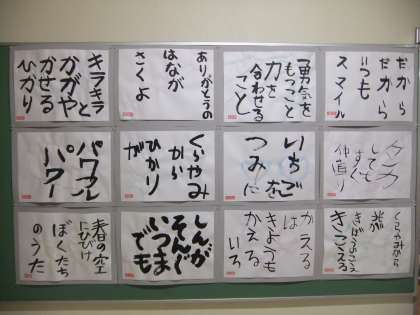 だから
だから
いつも
スマイル
勇気を
もつこと
力を
合わせる
こと
ありがとうの
はなが
さくよ
キラキラと
かがや
かせる
ひかり
ケンカ
しても
すぐ
仲直り
いちごを
つみに
くらやみ
から
ひかり
が
パワフル
パワー
くらやみから
きぼうのこえ
きこえる
かえる
は
きようも
かえる
いろ
しんが
そんぐ
いつま
でも
春の空
にひびけ
ぼくたち
のうた